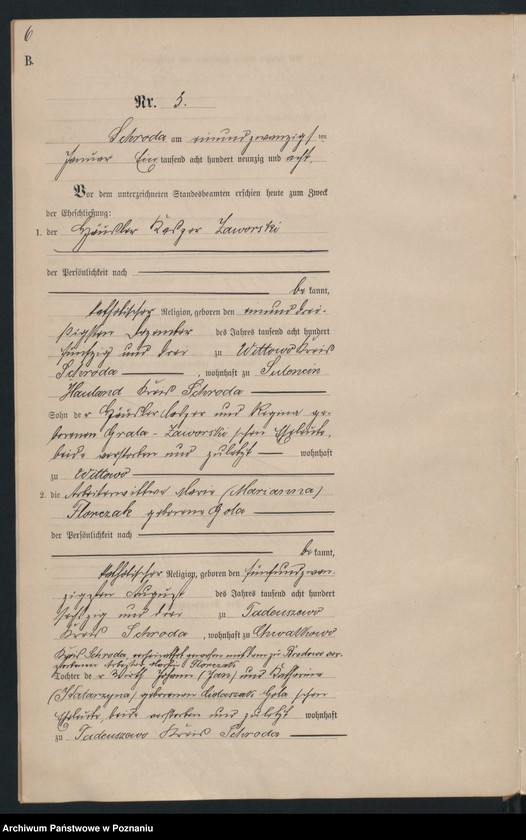 6
B.
Nr. 3.
Schroda am einundzwanzigsten
Januar Ein tausend acht hundert neunzig und acht.
Vor dem unterzeichneten Standesbeamten erschien heute zum Zweck
der Eheschließung:
1. der Häusler Kasper Zaworski
der Persönlichkeit nach
be kannt,
katholischer Religion, geboren den einunddrei-
ßigsten Dezember des Jahres tausend acht hundert
fünfzig und drei zu Wittowo Kreis
Schroda, wohnhaft zu Sulencin
Hauland Kreis Schroda
Sohn der Häusler und Regina ge-
borenen Grala-Zaworski'schen Eheleute,
beide verstorben und zuletzt wohnhaft
zu Wittowo
2. die Arbeiterwittwe Maria (Marianna)
Florczak geborene Gola
der Persönlichkeit nach
be kannt,
katholischer Religion, geboren den fünfundzwan-
zigsten August des Jahres tausend acht hundert
sechzig und drei zu Tadeuszewo
Kreis Schroda, wohnhaft zu Chwalkowo
Kreis Schroda, gewesen mit dem zu ver-
storbenen Florczak
Tochter der Wirth Johann (Jan) und Katharina
(Katarzyna) geborenen Gola'schen
Eheleute, beide verstorben und zuletzt wohnhaft
zu Tadeuszewo Kreis Schroda
Archiwum Państwowe w Poznaniu